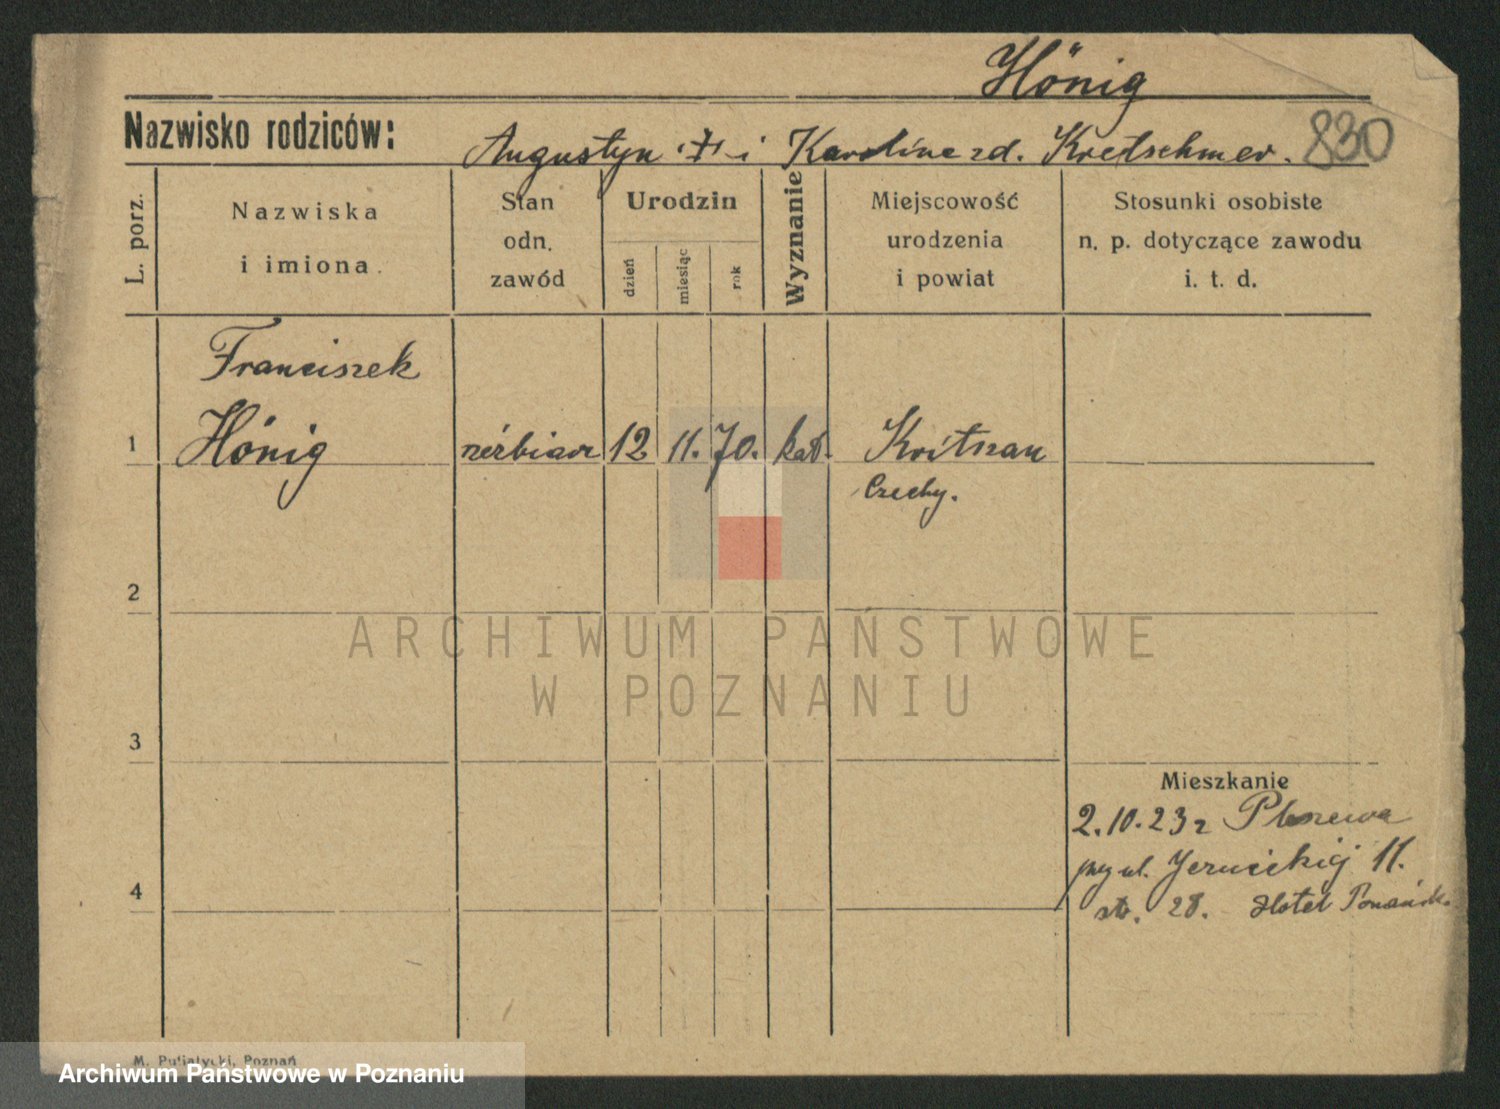 Hönig
Nazwisko rodziców: Augustyn i Karoline zd. Kretschmer. 830
L. porz.
Nazwiska
i imiona.
Stan
odn.
zawód
Urodzin
dzień
miesiąc
rok
Wyznanie
Miejscowość
urodzenia
i powiat
Stosunki osobiste
n. p. dotyczące zawodu
i. t. d.
Franciszek
1 Hönig rzeźbiarz 12 11. 70. kat. Kritzau
Czechy.
2
ARCHIWUM PAŃSTWOWE
W POZNANIU
3
Mieszkanie
2.10.23 z Pleszewa
ul. 11.
4
str. 28. Hotel
M. Putiatycki, Poznań
Archiwum Państwowe w Poznaniu